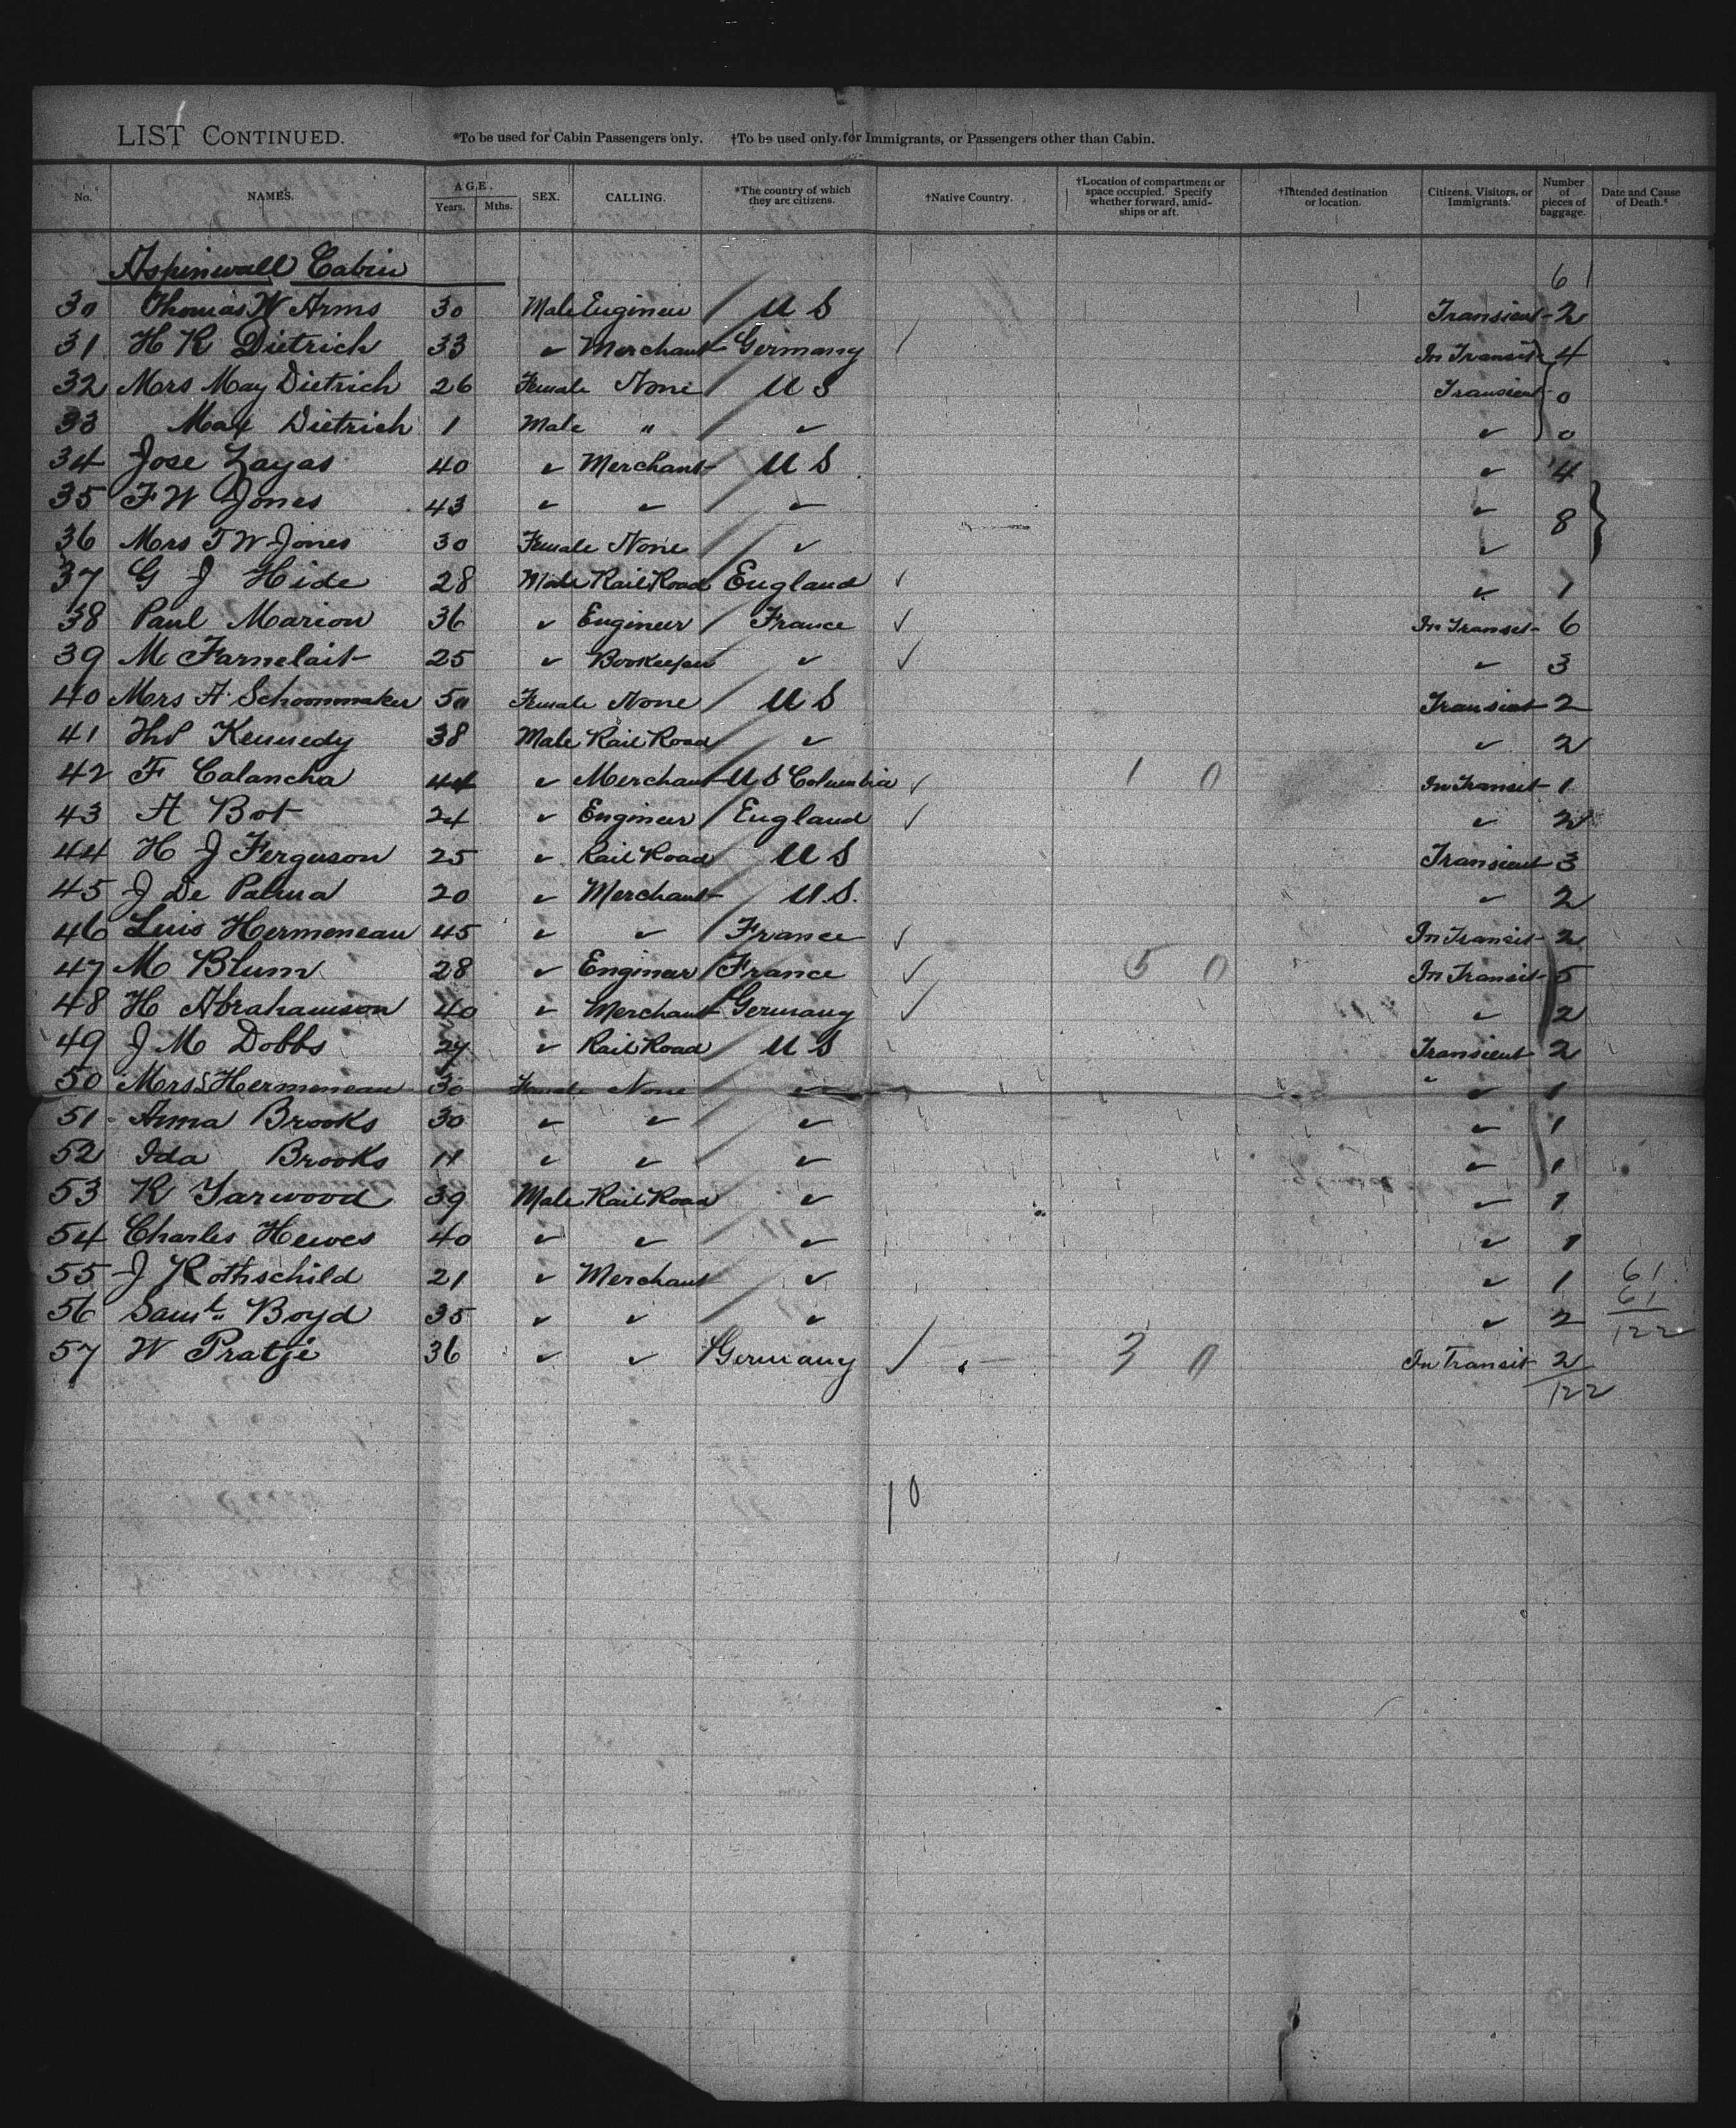 LIST CONTINUED. *To be used for Cabin Passengers only. †To be used only for Immigrants, or Passengers other than Cabin.
No. NAMES. AGE. Years. Mths. SEX. CALLING. *The country of which they are citizens. †Native Country. †Location of compartment or space occupied. Specify whether forward, amid-ships or aft. †Intended destination or location. Citizens, Visitors, or Immigrants. Number of pieces of baggage. Date and Cause of Death.*
Aspinwall Cabin 61
30 Thomas W Arms 30 Male Engineer / U S Transient 2
31 H K Dietrich 33 ✓ Merchant Germany ✓ In Transit 4
32 Mrs May Dietrich 26 Female None / U S Transient 0
33 Dietrich 1 Male " / ✓ ✓ 0
34 Jose Zayas 40 ✓ Merchant U S ✓ 4
35 F W Jones 43 ✓ ✓ / ✓ ✓
36 Mrs F W Jones 30 Female None / ✓ ✓ 8
37 G J Hide 28 Male Rail Road England ✓ ✓ 1
38 Paul Marion 36 ✓ Engineer / France ✓ In Transit 6
39 M Farnelait 25 ✓ Bookeeper ✓ ✓ ✓ 3
40 Mrs A Schoonmaker 50 Female None / U S Transient 2
41 Kennedy 38 Male Rail Road ✓ ✓ 2
42 F Calancha 44 ✓ Merchant U S Columbia ✓ 1 0 In Transit 1
43 A Bot 24 ✓ Engineer / England ✓ ✓ 2
44 H J Ferguson 25 ✓ Rail Road U S Transient 3
45 J De Palma 20 ✓ Merchant U S. ✓ 2
46 Luis Hermeneau 45 ✓ ✓ / France ✓ In Transit 2
47 M Blum 28 ✓ Engineer / France ✓ 5 0 In Transit 5
48 H Abrahamson 40 ✓ Merchant Germany ✓ ✓ 2
49 J M Dobbs 27 ✓ Rail Road / U S Transient 2
50 Mrs L Hermeneau 30 Female None ✓ ✓ 1
51 Anna Brooks 30 ✓ ✓ / ✓ ✓ 1
52 Ida Brooks 11 ✓ ✓ / ✓ ✓ 1
53 R Yarwood 39 Male Rail Road ✓ ✓ 1
54 Charles Hewes 40 ✓ ✓ / ✓ ✓ 1
55 J Rothschild 21 ✓ Merchant ✓ ✓ 1 61
56 Saml. Boyd 35 ✓ ✓ ✓ ✓ 2 61
122
57 W Pratje 36 ✓ ✓ / Germany ✓ 3 0 In Transit 2
122
10